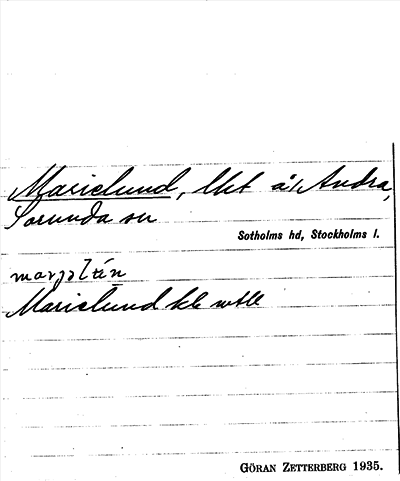 Marielund, lht å Andra,
Sorunda sn
Sotholms hd, Stockholms l.
Marielund
GÖRAN ZETTERBERG 1935.